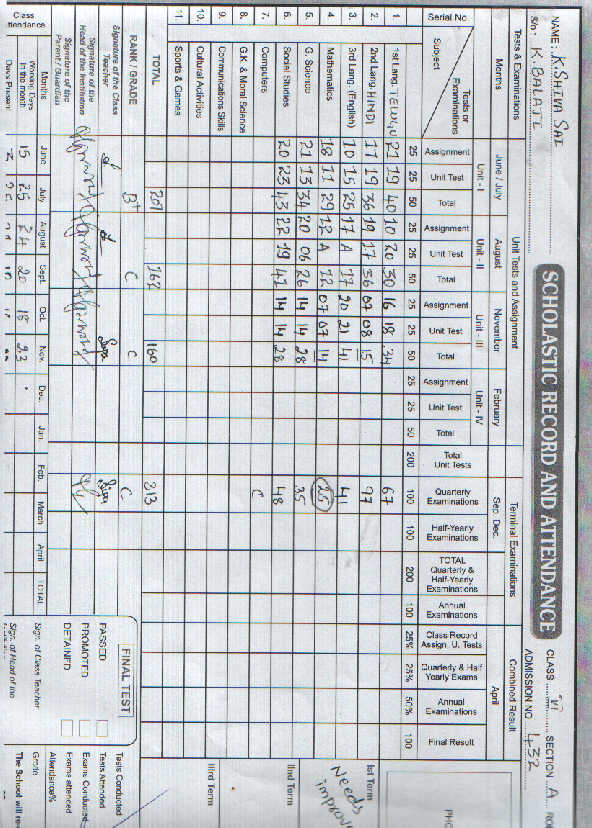 SCHOLASTIC RECORD AND ATTENDANCE
NAME: K. SHIVA SAI CLASS VI SECTION A
S/o: K. BALAJI ADMISSION NO. 432
Tests & Examinations Unit Tests and Assignment Terminal Examinations Combined Result
Months June / July August November February Sep. Dec. April
Unit - I Unit - II Unit - III Unit - IV
Tests or Examinations
Subject
Assignment Unit Test Total Assignment Unit Test Total Assignment Unit Test Total Assignment Unit Test Total Total Unit Tests Quarterly Examinations Half-Yearly Examinations TOTAL Quarterly & Half-Yearly Examinations Annual Examinations Class Record Assign. U. Tests Quarterly & Half Yearly Exams Annual Examinations Final Result
Serial No 25 25 50 25 25 50 25 25 50 25 25 50 200 100 100 200 100 25% 25% 50% 100
1. 1st Lang. TELUGU 21 19 40 10 20 30 16 18 34 67
2. 2nd Lang. HINDI 17 19 36 19 17 36 07 08 15 97
3. 3rd Lang (English) 10 15 25 17 A 17 20 21 41 41
4. Mathematics 18 11 29 12 A 12 07 07 14 25
5. G. Science 21 13 34 20 06 26 14 14 28 35
6. Social Studies 20 23 43 22 19 41 14 14 28 48
7. Computers C
8. G.K. & Moral Science
9. Communications Skills
10. Cultural Activities
11. Sports & Games
TOTAL 207 162 160 313
RANK / GRADE B+ C C C
Signature of the Class Teacher
Signature of the Head of the Institution
Signature of the Parent / Guardian
Ist Term
Needs improve
IInd Term
IIIrd Term
FINAL TEST
PASSED
PROMOTED
DETAINED
Tests Conducted
Tests Attended
Exams Conducted
Exams attended
Attendance%
Grade
The School will re
Class Attendance
Months June July August Sept. Oct. Nov. Dec. Jan. Feb. March April TOTAL
Working Days in the month 15 25 24 20 23
Days Present
Sign. of Class Teacher
Sign. of Head of the